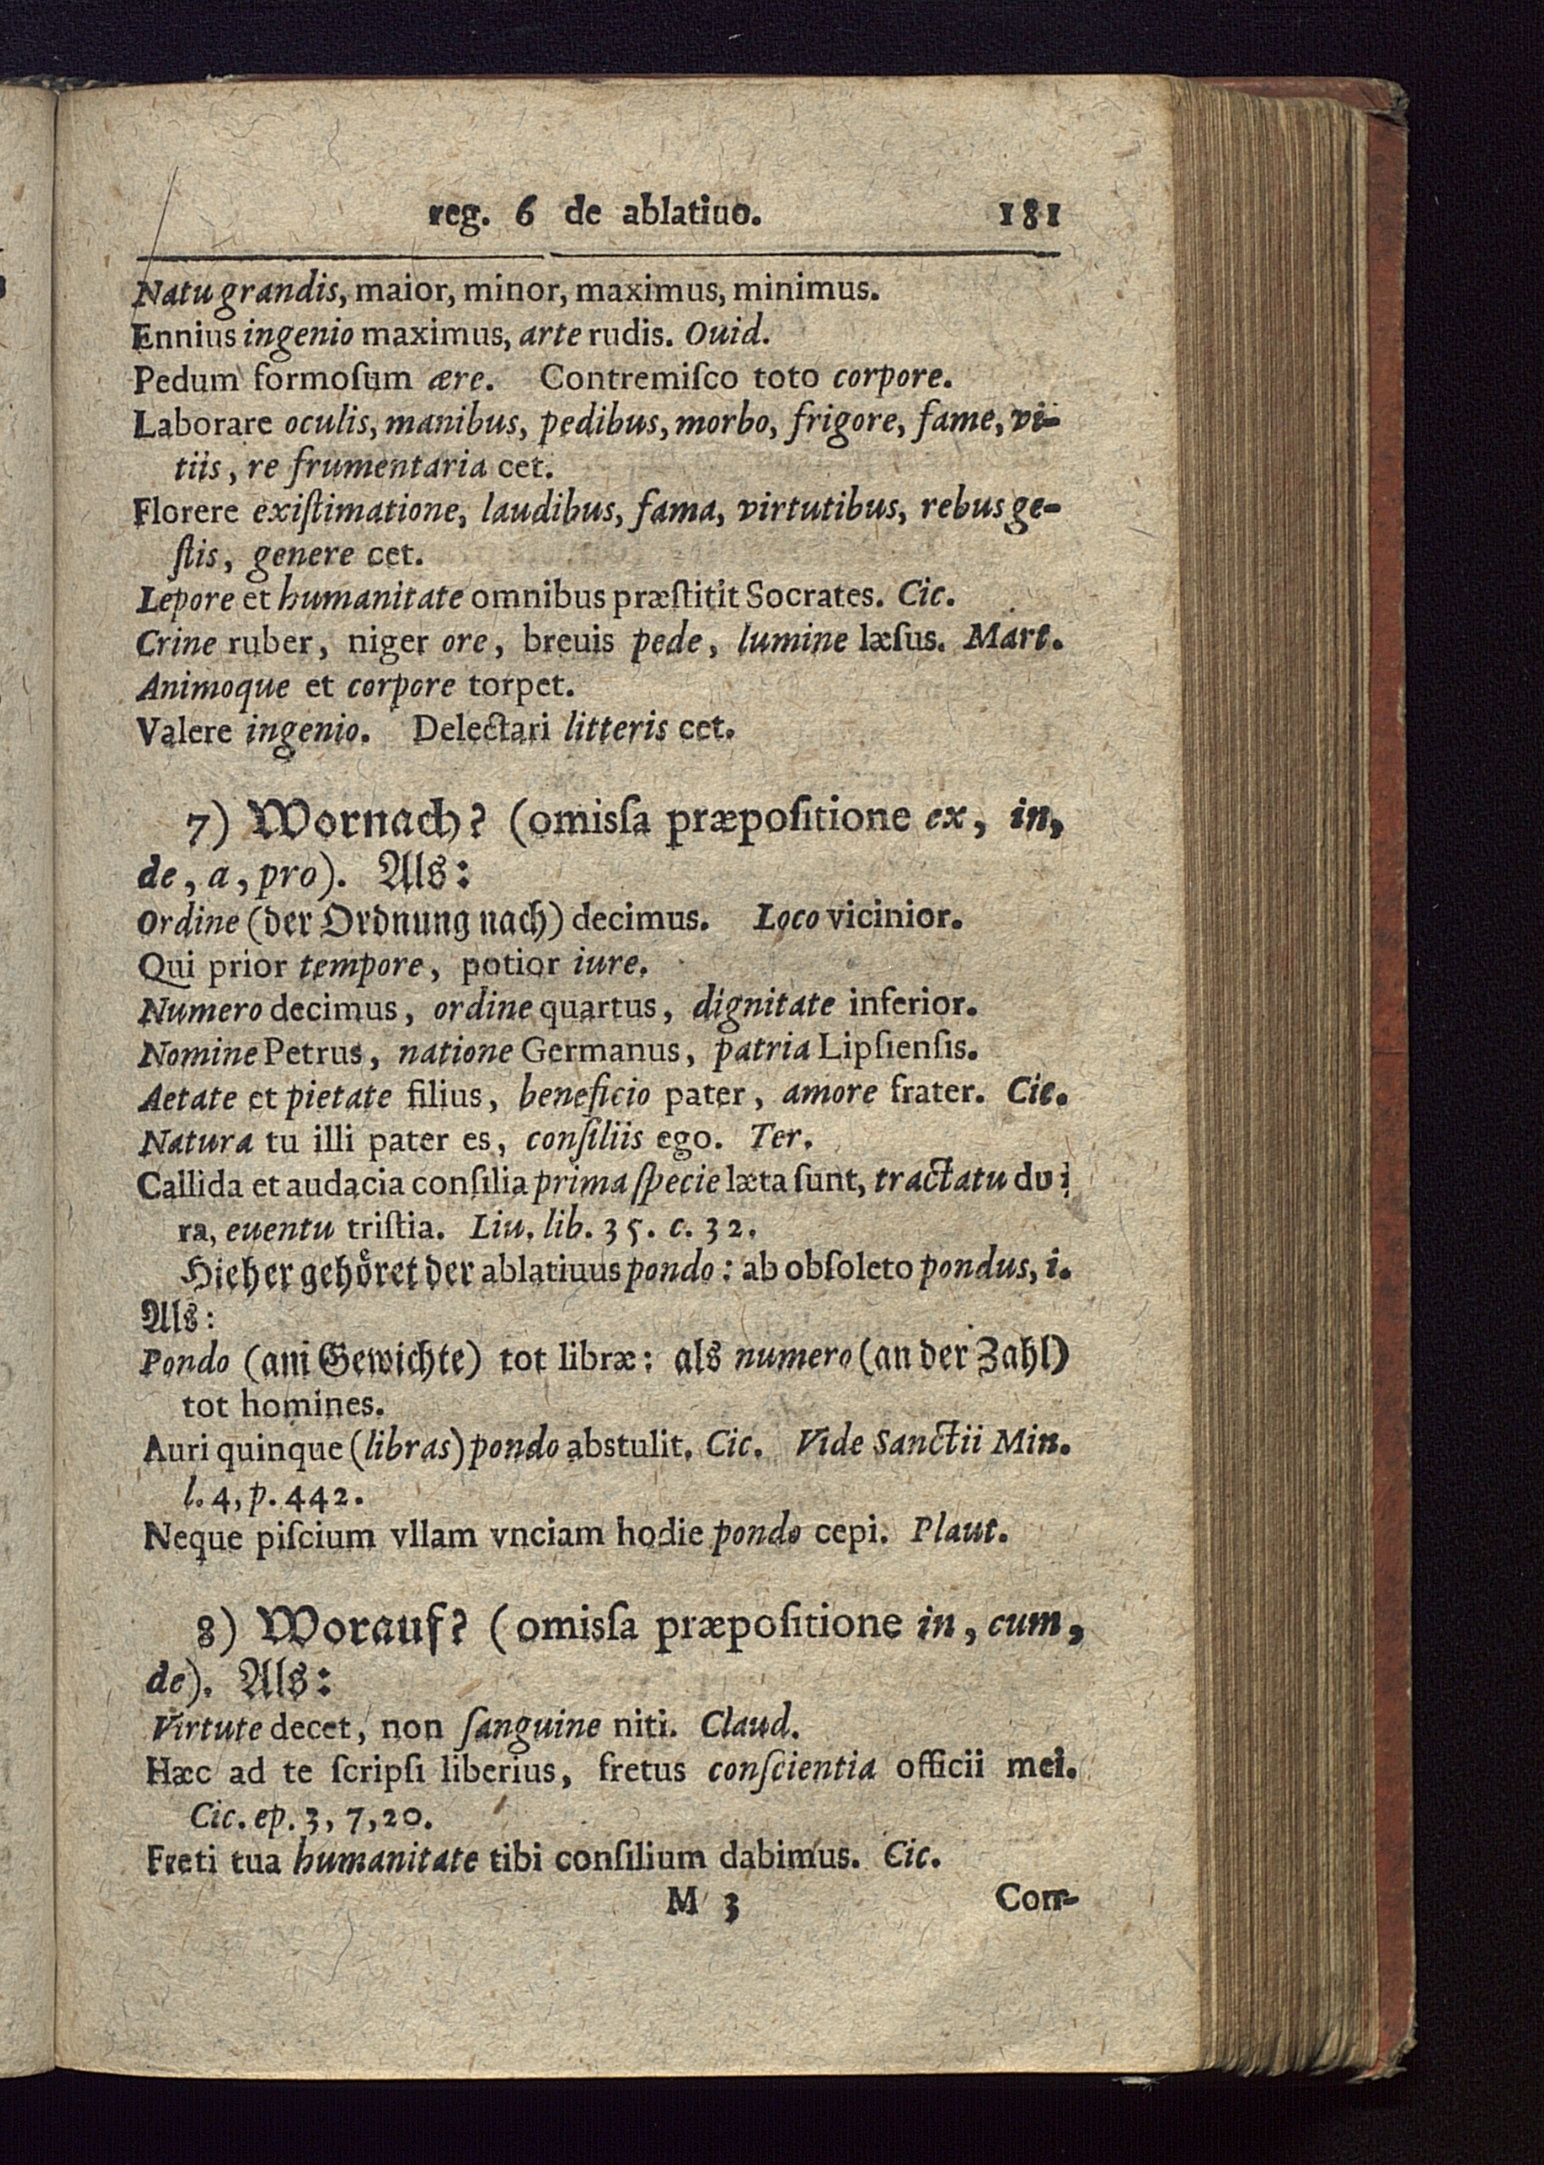 reg. 6 de ablatiuo. 181
Natu grandis, maior, minor, maximus, minimus.
Ennius ingenio maximus, arte rudis. Ouid.
Pedum formoſum ære. Contremiſco toto corpore.
Laborare oculis, manibus, pedibus, morbo, frigore, fame, vi-
tiis, re frumentaria cet.
Florere exiſtimatione, laudibus, fama, virtutibus, rebus ge-
ſtis, genere cet.
Lepore et humanitate omnibus præſtitit Socrates. Cic.
Crine ruber, niger ore, breuis pede, lumine læſus. Mart.
Animoque et corpore torpet.
Valere ingenio. Delectari litteris cet.
7) Wornach? (omiſſa præpoſitione ex, in,
de, a, pro). Als:
Ordine (der Ordnung nach) decimus. Loco vicinior.
Qui prior tempore, potior iure.
Numero decimus, ordine quartus, dignitate inferior.
Nomine Petrus, natione Germanus, patria Lipſienſis.
Aetate et pietate filius, beneficio pater, amore frater. Cic.
Natura tu illi pater es, conſiliis ego. Ter.
Callida et audacia conſilia prima ſpecie læta ſunt, tractatu du-
ra, euentu triſtia. Liu. lib. 35. c. 32.
Hieher gehöret der ablatiuus pondo: ab obſoleto pondus, i.
Als:
Pondo (am Gewichte) tot libræ: als numero (an der Zahl)
tot homines.
Auri quinque (libras) pondo abstulit. Cic. Vide Sanctii Min.
l. 4, p. 442.
Neque piſcium vllam vnciam hodie pondo cepi. Plaut.
8) Worauf? (omiſſa præpoſitione in, cum,
de). Als:
Virtute decet, non ſanguine niti. Claud.
Hæc ad te ſcripſi liberius, fretus conſcientia officii mei.
Cic. ep. 3, 7, 20.
Freti tua humanitate tibi conſilium dabimus. Cic.
M 3 Corr-